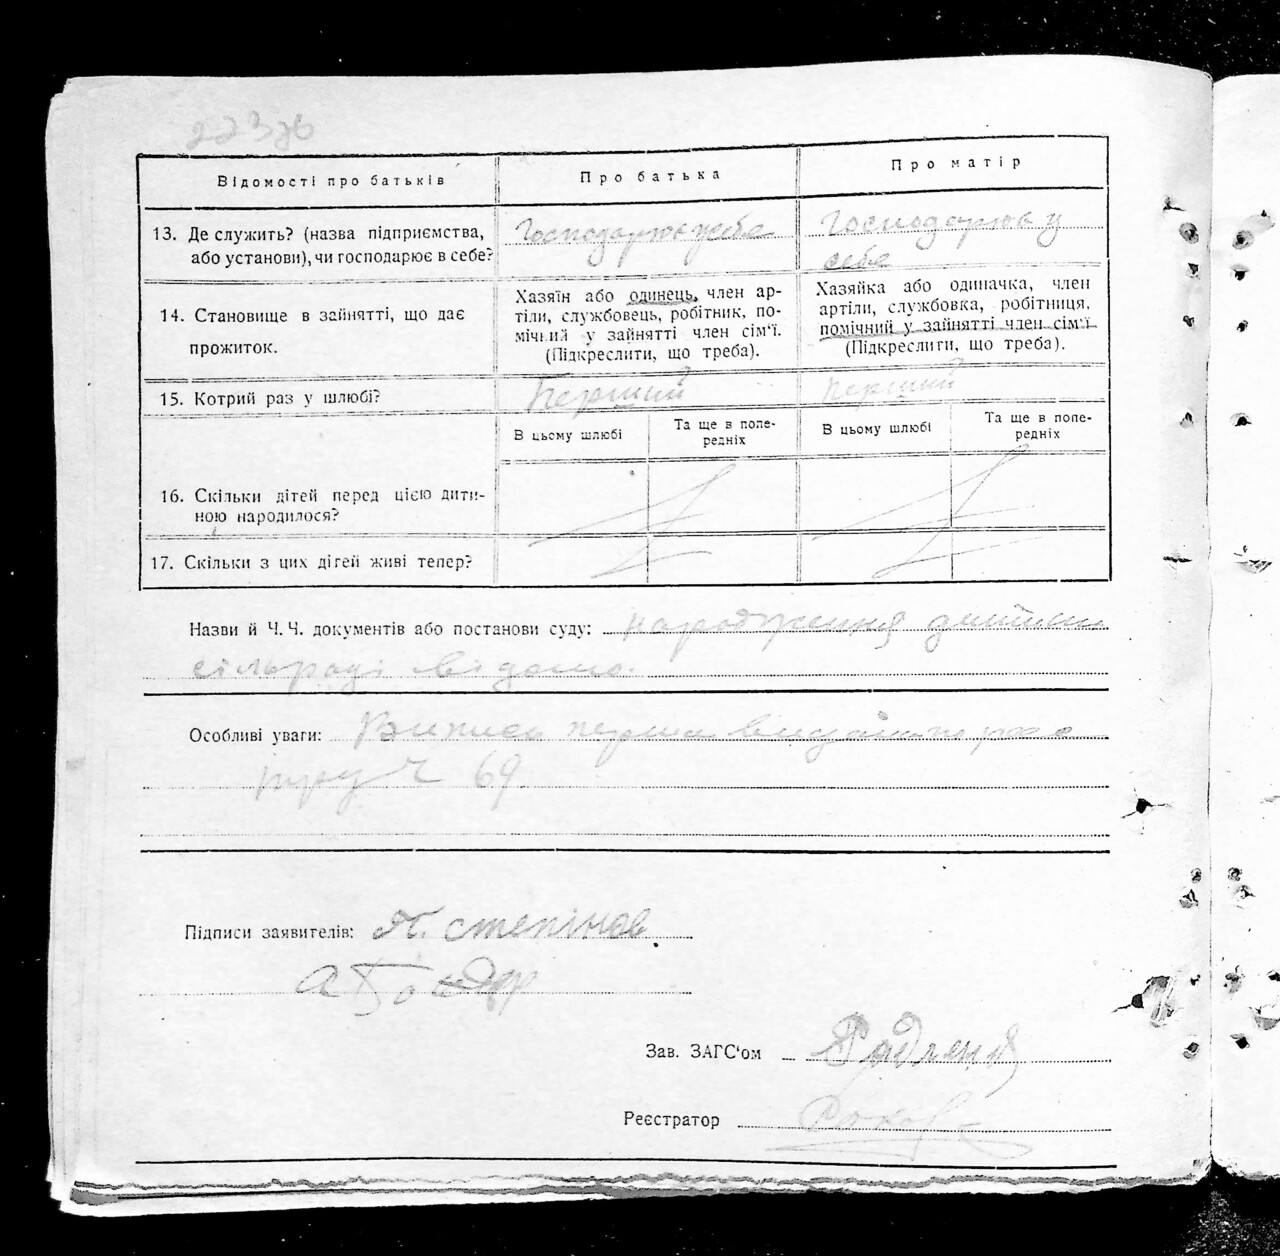 Відомості про батьків
Про батька
Про матір
13. Де служить? (назва підприємства,
або установи), чи господарює в себе?
Господарює у себе
Господарює у
себе
14. Становище в зайнятті, що дає
прожиток.
Хазяїн або одинець, член ар-
тілі, службовець, робітник, по-
мічний у зайнятті член сім‘ї.
(Підкреслити, що треба).
Хазяйка або одиначка, член
артілі, службовка, робітниця,
помічний у зайнятті член сім‘ї
(Підкреслити, що треба).
15. Котрий раз у шлюбі?
Перший
перший
В цьому шлюбі
Та ще в попе-
редніх
В цьому шлюбі
Та ще в попе-
редніх
16. Скільки дітей перед цією дити-
ною народилося?
17. Скільки з цих дітей живі тепер?
Назви й Ч. Ч. документів або постанови суду: народження дитини
сільраді відомо.
Особливі уваги: Випись перша видана по
69
Підписи заявителів: степінов
Зав. ЗАГС‘ом
Реєстратор